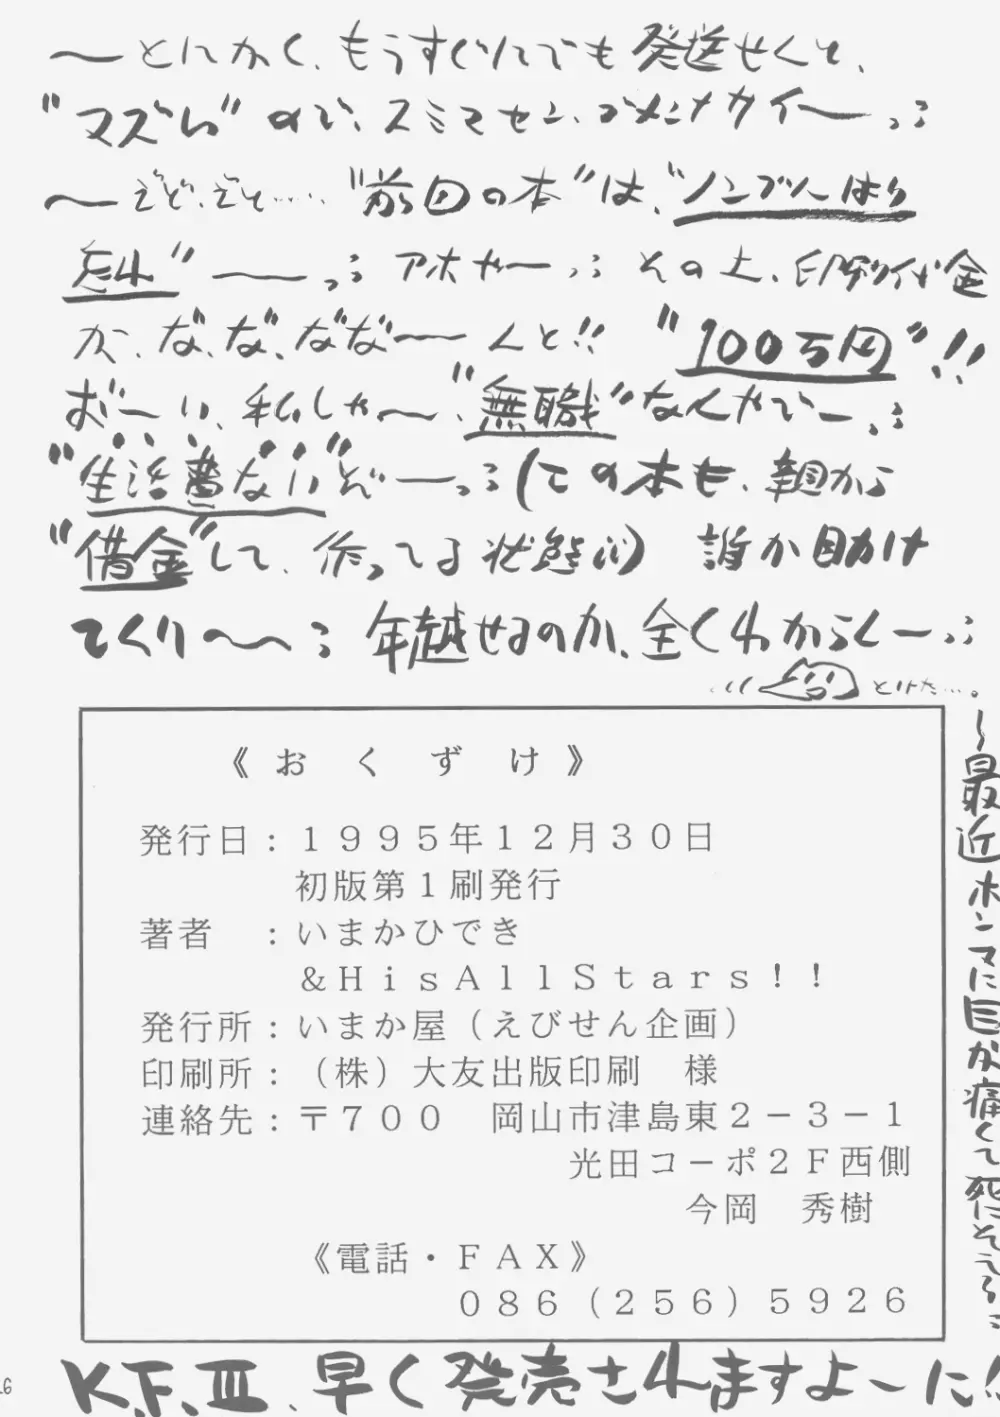 〜とにかく、もうすぐにでも発送せんと、
"マズい"ので、スミマセン、ゴメンナサイ〜っ;
〜ぞぞ、ぞぞ……"前回の本"は、"ノンブルはり
忘れ"〜〜っ; アホや〜っ; その上、印刷代金
が、な、な、なな〜んと!! "100万円"!!
お〜い、私しゃ〜、"無職"なんやで〜っ;
"生活費ない"ぞ〜っ;(この本も、親から
"借金"して、作ってる状態;) 誰か助け
てくり〜〜; 年越せるのか、全くわからん〜っ;
とけた…。
《おくずけ》
発行日：１９９５年１２月３０日
初版第１刷発行
著者　：いまかひでき
＆ＨｉｓＡｌｌＳｔａｒｓ！！
発行所：いまか屋（えびせん企画）
印刷所：（株）大友出版印刷　様
連絡先：〒７００　岡山市津島東２－３－１
光田コーポ２Ｆ西側
今岡　秀樹
《電話・ＦＡＸ》
０８６（２５６）５９２６
〜最近ホンマに目が痛くて死にそう〜;
K.F.III、早く発売されますよーに!!
26